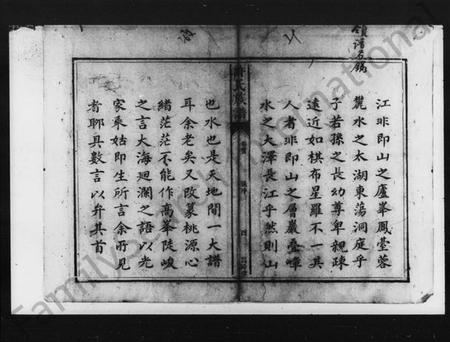 江非即山之廬峯鳳臺蓉
髋水之太湖東蕩洞庭乎
子若孫之長幼尊卑親疎
遠近如棋布星羅不一其
人者非即山之層巖疊嶂
水之大澤長江乎然則山
也水也是天地間一大譜
耳余老矣又改篆桃源心
緒茫茫不能作高峯陡峻
之言大海迴瀾之語以光
家乘姑即生所言余所見
者聊具數言以弁其首
氏族譜
FamilySearch International